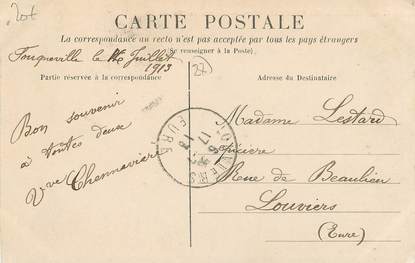 20t
CARTE POSTALE
La correspondance au recto n'est pas acceptée par tous les pays étrangers
(Se renseigner à la Poste).
Fouqueville le 16 Juillet
1913
Partie réservée à la correspondance
Adresse du Destinataire
27
Bon souvenir
à toutes deux
Vve Chennaviere
Madame Lestard
épicière
Rue de Beaulieu
Louviers
(Eure)
LOUVIERS
EURE